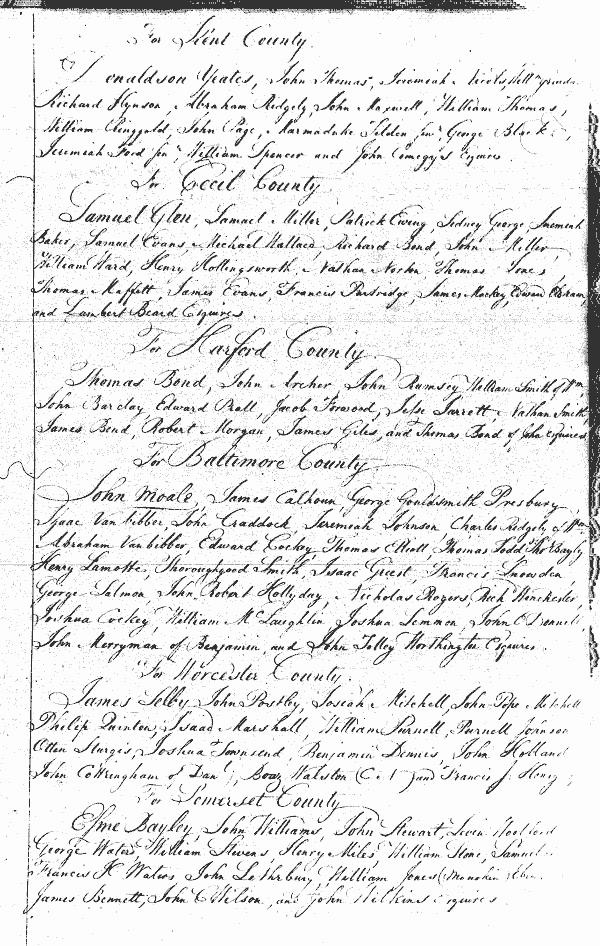 For Kent County.
Donaldson Yeates, John Thomas, Jeremiah Nicols, Will<sup>m</sup>
Richard Hynson, Abraham Ridgely, John Maxwell, William Thomas,
William Ringgold, John Page, Marmaduke Tilden Jun<sup>r</sup> George Black
Jeremiah Ford Jun<sup>r</sup>, William Spencer and John Comegys Esquires
For Cecil County.
Samuel Glen, Samuel Miller, Patrick Ewing, Sidney George, Jeremiah
Baker, Samuel Evans, Michael Wallace, Richard Bond, John Miller,
William Ward, Henry Hollingsworth, Nathan Thomas Jones
Thomas Maffett, James Evans, Francis Partridge, James Mackey, Edward
and Lambert Beard Esquires.
For Harford County
Thomas Bond, John Archer, John Rumsey William Smith of W<sup>m</sup>
John Barclay Edward Prall, Jacob Forwood, Jesse Jarrett, Nathan Smith,
James Bond, Robert Morgan, James Giles, and Thomas Bond of John Esquires
For Baltimore County
John Moale, James Calhoun George Gouldsmith Presbury,
Isaac Vanbibber, John Craddock, Jeremiah Johnson Charles Ridgely of W<sup>m</sup>
Abraham Vanbibber, Edward Cockey Thomas Elliott, Thomas Todd Tho<sup>s</sup> Bayly
Henry Lamotte, Thoroughgood Smith, Isaac Griest, Francis Snowden,
George Salmon John Robert Hollyday, Nicholas Rogers, Rich Winchester,
Joshua Cockey, William McLaughlin Joshua Lemmon, John
John Merryman of Benjamin, and John Tolley Worthington Esquires.
For Worcester County.
James Selby John Postley, Josiah Mitchell, John Pope Mitchell
Philip Quinton, Isaac Marshall, William Purnell, Purnell Johnson
Otten Sturgis, Joshua Townsend, Benjamin Dennis, John Holland
John Cottringham of Dan<sup>l</sup>, Boaz Walston and Francis J. Henry
For Somerset County
Esme Bayley, John Williams, John Stewart, Levin Woolford
George Waters, William Stevens, Henry Miles William Stone, Samuel
Francis H Waters John Leatherbury, William Jones (Monokin)
James Bennett, John C Wilson, and John Wilkins Esquires.